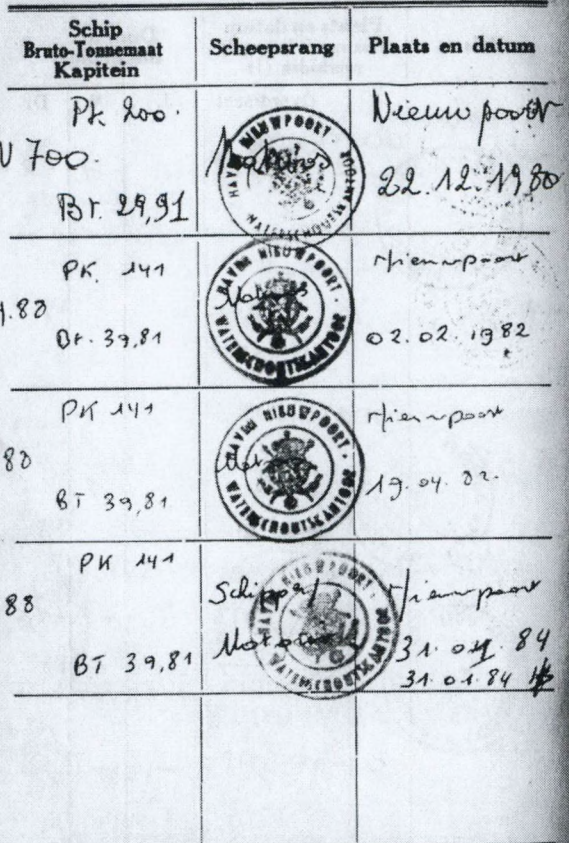 Schip
Bruto-Tonnemaat
Kapitein
Scheepsrang
Plaats en datum
PK. 200.
700.
Bt. 29,91
Matroos
HAVEN NIEUWPOORT
WATERSCHOUTSKANTOOR
Nieuwpoort
22.12.1980
.80
PK. 141
Bt. 39,81
HAVEN NIEUWPOORT
WATERSCHOUTSKANTOOR
Nieuwpoort
02.02.1982
80
PK 141
BT 39,81
HAVEN NIEUWPOORT
WATERSCHOUTSKANTOOR
Nieuwpoort
19.04.82.
88
PK 141
BT 39,81
Schipper/
HAVEN NIEUWPOORT
WATERSCHOUTSKANTOOR
Nieuwpoort
31. 84
31.01.84